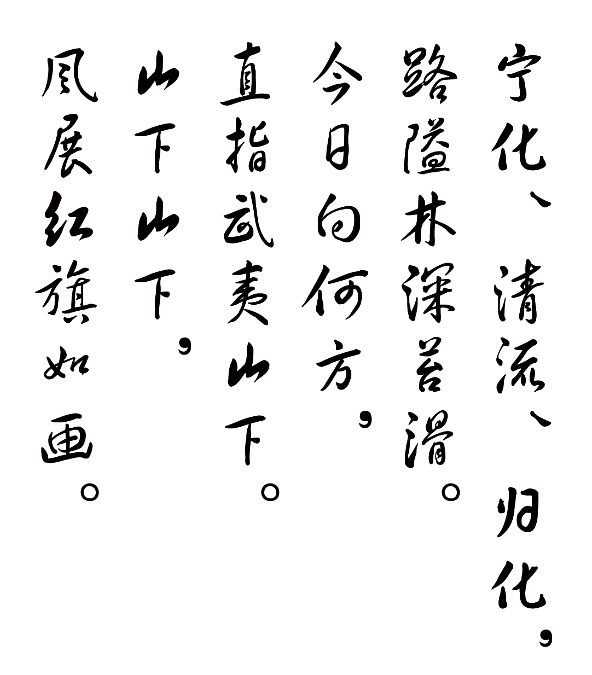 宁化、清流、归化，
路隘林深苔滑。
今日向何方，
直指武夷山下。
山下山下，
风展红旗如画。